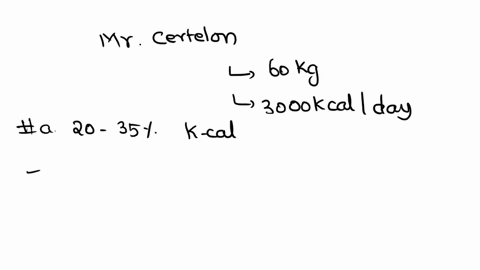 Mr. Certelon
↳ 60 kg
↳ 3000 kcal / day
#a. 20 - 35% k-cal
–